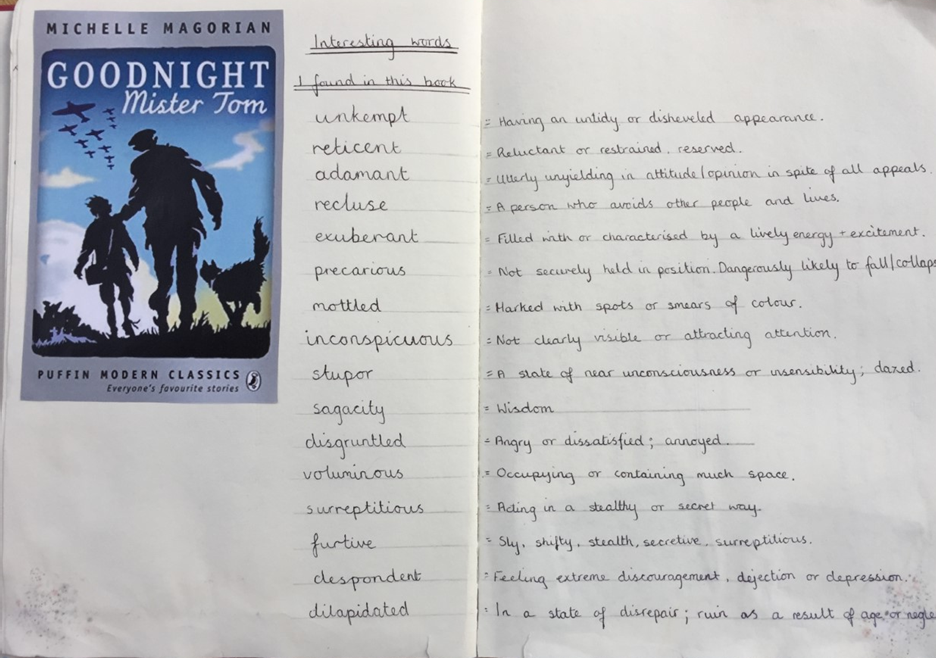 MICHELLE MAGORIAN
GOODNIGHT
Mister Tom
PUFFIN MODERN CLASSICS
Everyone's favourite stories
Interesting words
I found in this book
unkempt = Having an untidy or disheveled appearance.
reticent = Reluctant or restrained. reserved.
adamant = Utterly unyielding in attitude/opinion in spite of all appeals.
recluse = A person who avoids other people and lives.
exuberant = Filled with or characterised by a lively energy + excitement.
precarious = Not securely held in position. Dangerously likely to fall/collaps
mottled = Marked with spots or smears of colour.
inconspicuous = Not clearly visible or attracting attention.
stupor = A state of near unconsciousness or insensibility; dazed.
sagacity = Wisdom
disgruntled = Angry or dissatisfied; annoyed.
voluminous = Occupying or containing much space.
surreptitious = Acting in a stealthy or secret way.
furtive = Sly, shifty, stealth, secretive, surreptitious.
despondent = Feeling extreme discouragement, dejection or depression.
dilapidated = In a state of disrepair; ruin as a result of age or negle